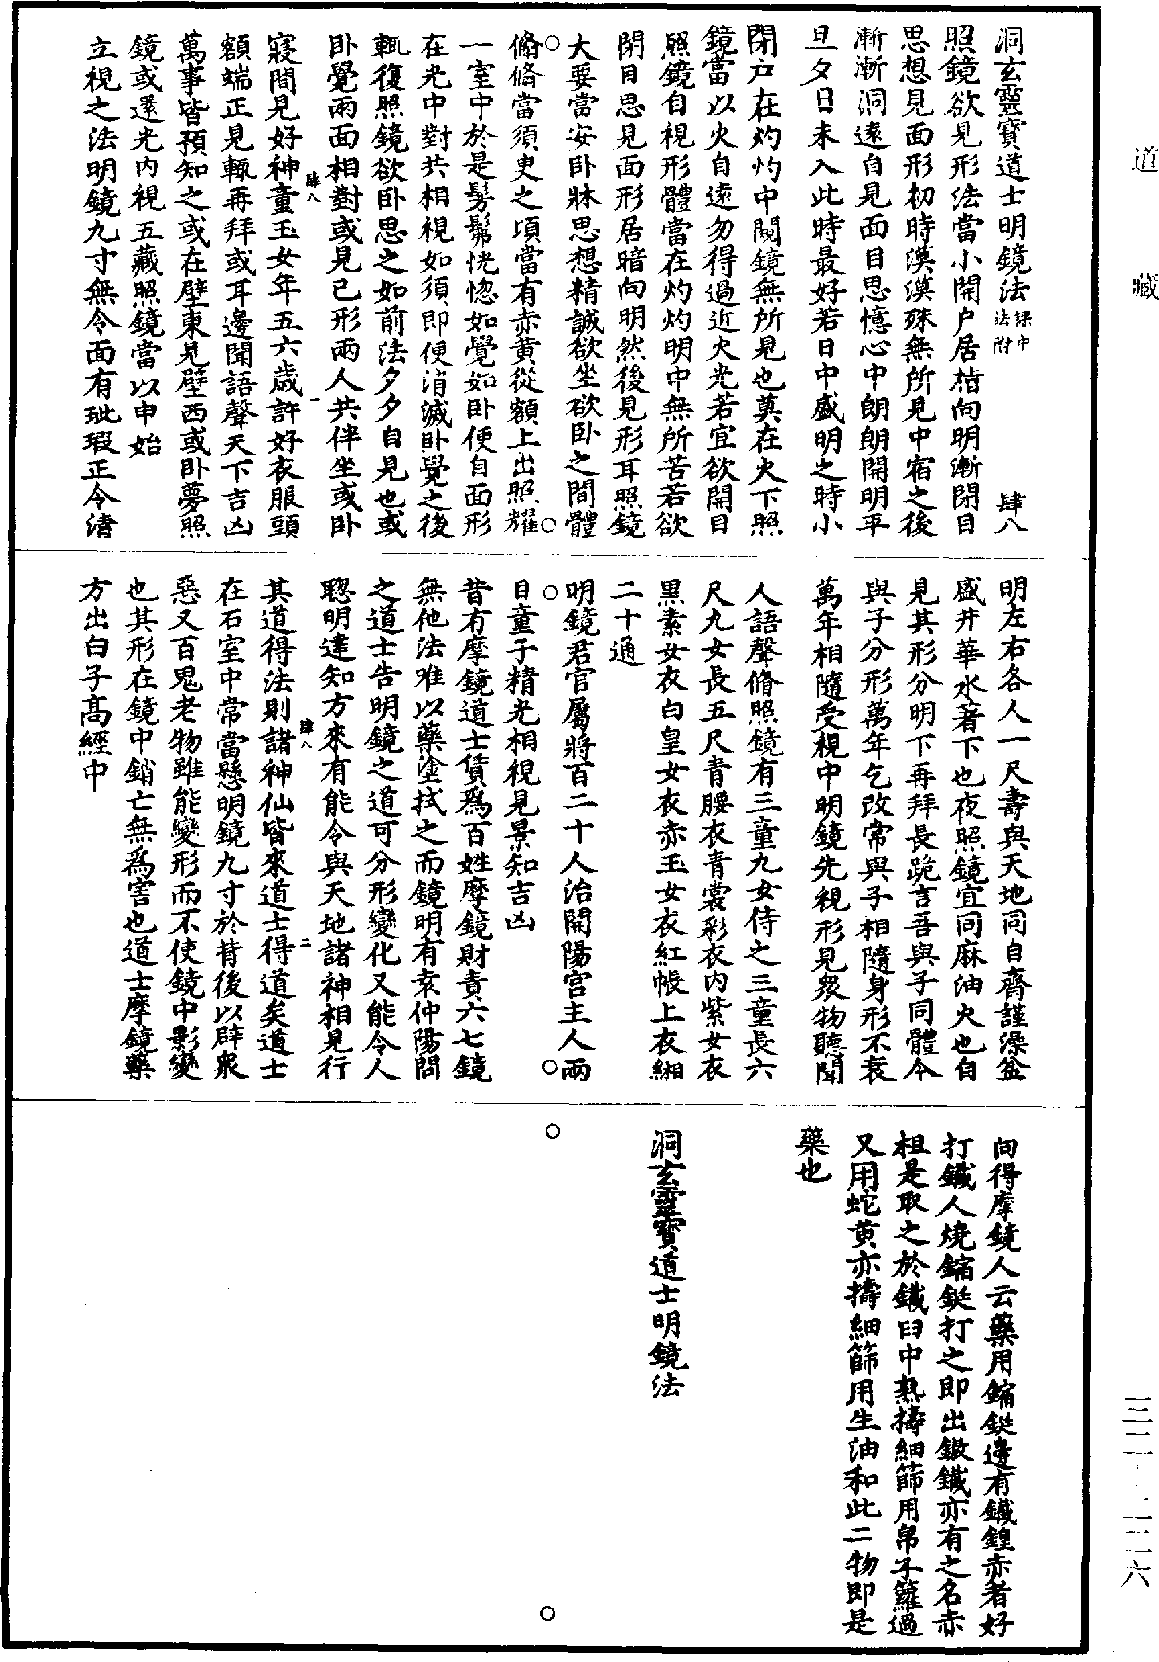 道藏
洞玄靈寶道士明鏡法
肆八
照鏡欲見形法當小開户居栝向明漸閉目
思想見面形初時漠漠殊無所見中宿之後
漸漸洞遠自見面目思憶心中朗朗開明平
旦夕日未入此時最好若日中盛明之時小
閉户在灼灼中闚鏡無所見也莫在火下照
鏡當以火自遠勿得過近火光若宜欲開目
照鏡自視形體當在灼灼明中無所苦若欲
閉目思見面形居暗向明然後見形耳照鏡
大要當安卧牀思想精誠欲坐欲卧之間體
翛翛當須臾之頃當有赤黄從額上出照耀
一室中於是髣髴恍惚如覺如卧便自面形
在光中對共相視如須即便消滅卧覺之後
輒復照鏡欲卧思之如前法夕夕自見也或
卧覺兩面相對或見己形兩人共伴坐或卧
肆八
一
寤間見好神童玉女年五六歲許好衣服頭
額端正見輒再拜或耳邊聞語聲天下吉凶
萬事皆預知之或在壁東見壁西或卧夢照
鏡或還光内視五藏照鏡當以申始
立視之法明鏡九寸無令面有玼瑕正令清
明左右各人一尺壽與天地同自齋謹澡盆
盛井華水著下也夜照鏡宜同麻油火也自
見其形分明下再拜長跪言吾與子同體今
與子分形萬年乞改常與子相隨身形不衰
萬年相隨受視中明鏡先視形見衆物聽聞
人語聲脩照鏡有三童九女侍之三童長六
尺九女長五尺青腰衣青裳彩衣内紫女衣
黑素女衣白皇女衣赤玉女衣紅帳上衣緗
二十通
明鏡君官屬將百二十人治開陽宫主人兩
日童子精光相視見景知吉凶
昔有摩鏡道士賃爲百姓摩鏡財責六七鏡
無他法唯以藥塗拭之而鏡明有袁仲陽問
之道士告明鏡之道可分形變化又能令人
聰明達知方來有能令與天地諸神相見行
肆八
二
其道得法則諸神仙皆來道士得道矣道士
在石室中常當懸明鏡九寸於背後以辟衆
惡又百鬼老物雖能變形而不使鏡中影變
也其形在鏡中銷亡無爲害也道士摩鏡藥
方出白子高經中
向得摩鏡人云藥用鍋鋌邊有鐵鍠赤者好
打鐵人燒鍋鋌打之即出鐵亦有之名赤
柤是取之於鐵臼中熟擣細篩用帛子籮過
又用蛇黄亦擣細篩用生油和此二物即是
藥也
洞玄靈寶道士明鏡法